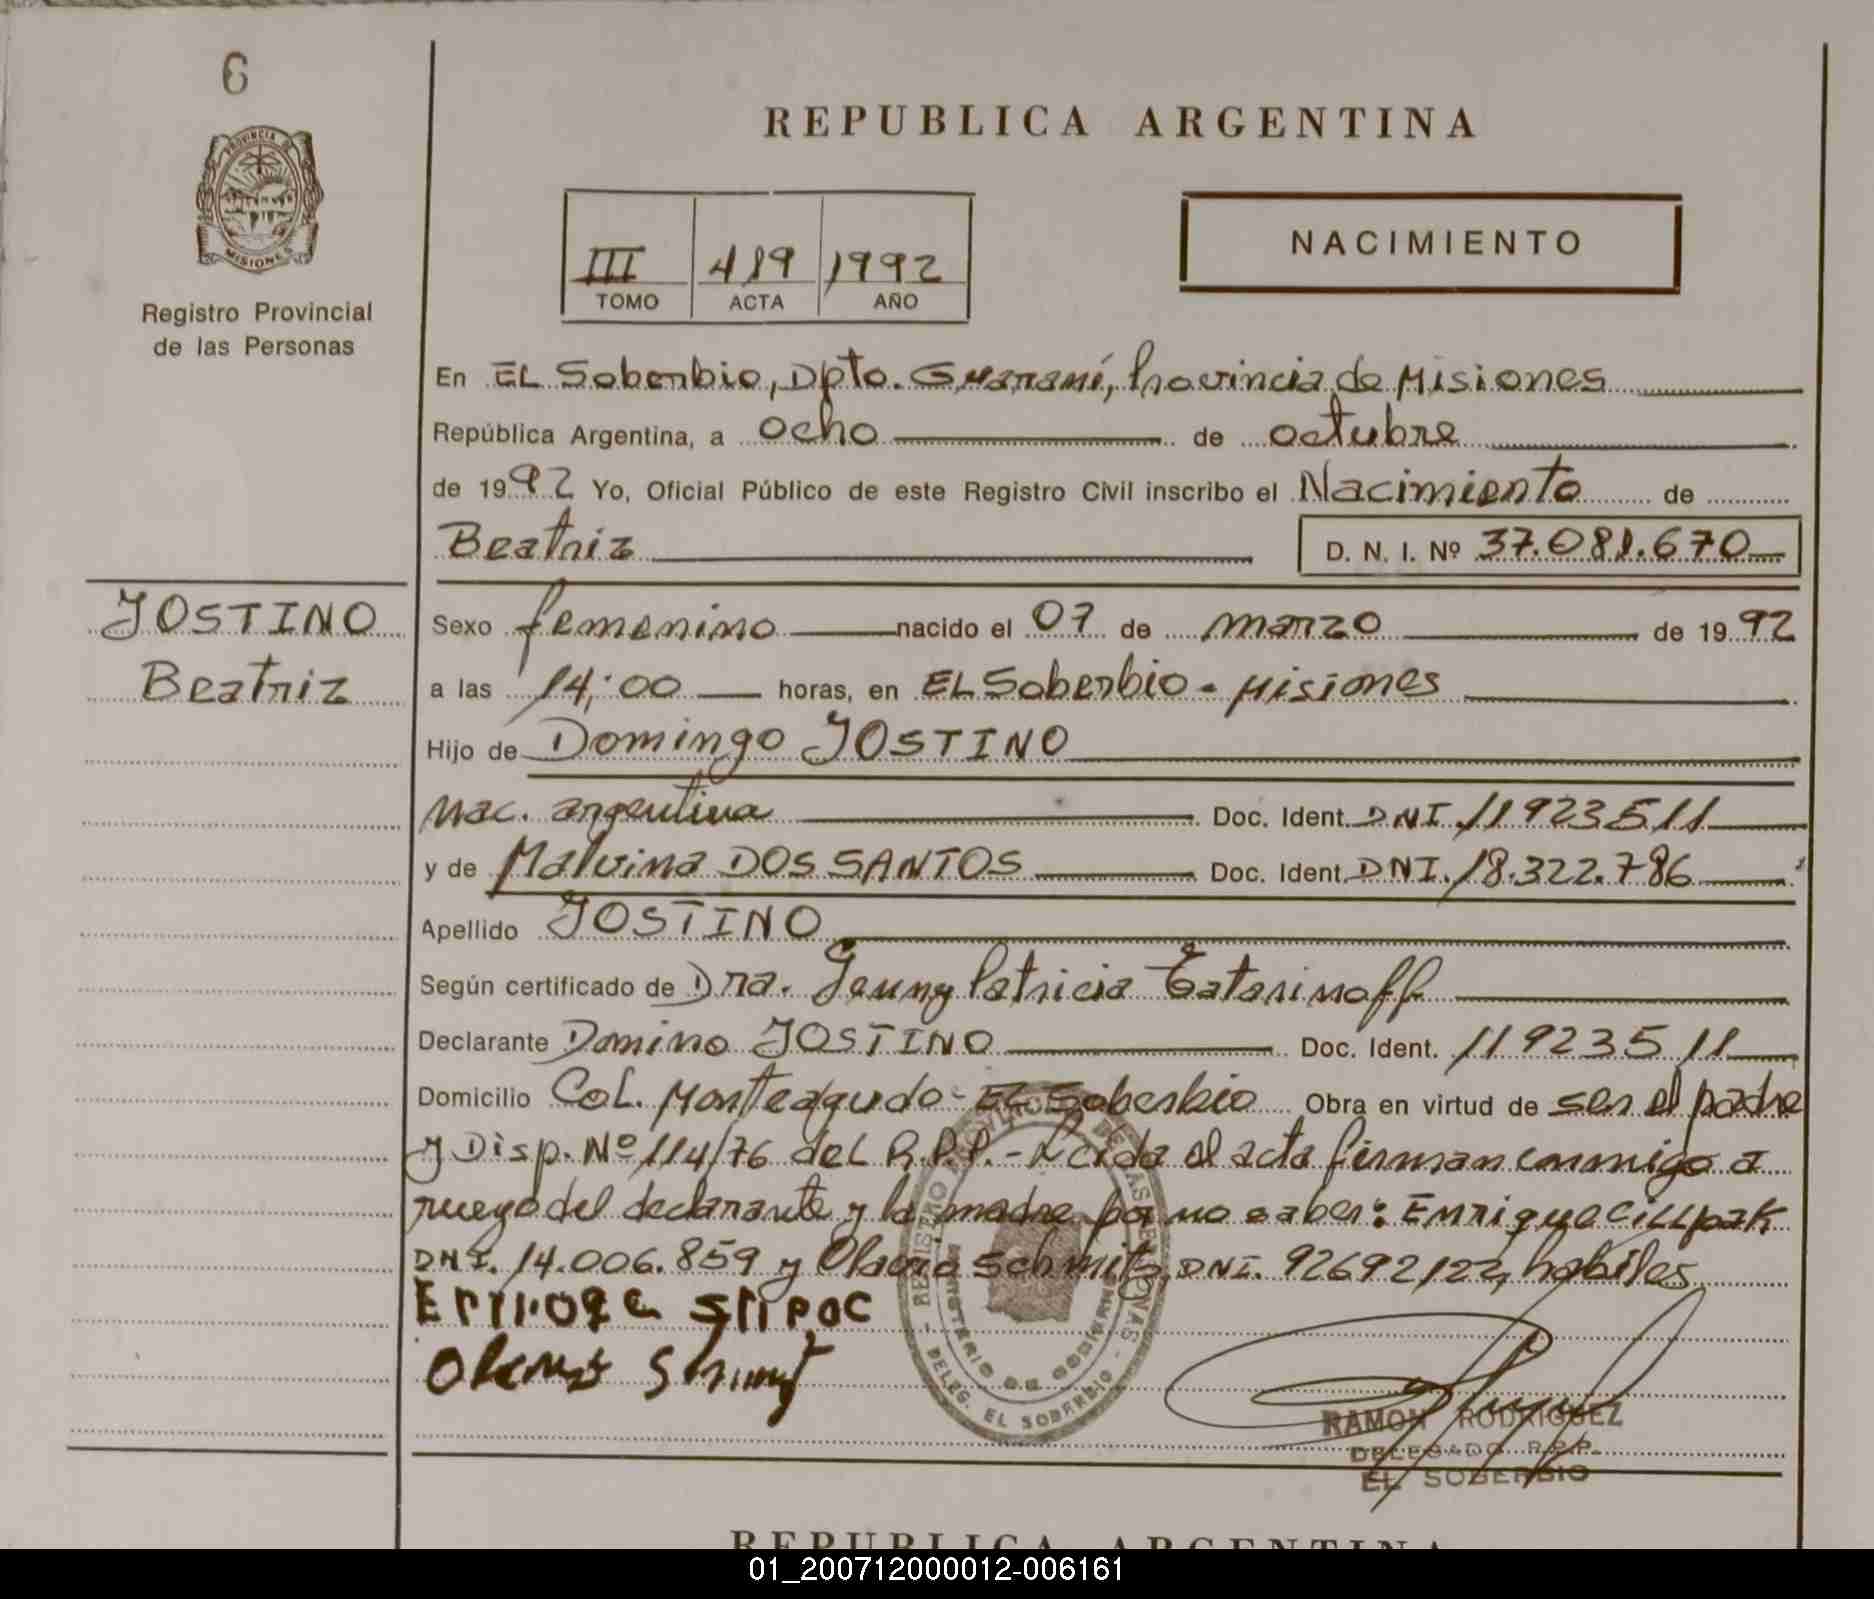 6
PROVINCIA DE
MISIONES
Registro Provincial
de las Personas
REPUBLICA ARGENTINA
III 419 1992
TOMO ACTA AÑO
NACIMIENTO
En EL Soberbio, Dpto. Guaraní, Provincia de Misiones
República Argentina, a ocho de octubre
de 1992 Yo, Oficial Público de este Registro Civil inscribo el Nacimiento de
Beatriz D. N. I. Nº 37.081.670
JOSTINO
Beatriz
Sexo femenino nacido el 07 de marzo de 1992
a las 14:00 horas, en EL Soberbio - Misiones
Hijo de Domingo JOSTINO
nac. argentina Doc. Ident. DNI. 11923511
y de Malvina DOS SANTOS Doc. Ident. DNI. 18.322.786
Apellido JOSTINO
Según certificado de Dra. Jenny Patricia Tatarinoff
Declarante Domino JOSTINO Doc. Ident. 11923511
Domicilio Col. Monteagudo - EL Soberbio Obra en virtud de ser el padre
y Disp. Nº 114/76 del R.P.P. - Leida el acta firman conmigo a
ruego del declarante y la madre por no saber: Enrique Cillpak
DNI. 14.006.859 y Olavio Schmitz, DNI. 92692122, habiles
RAMON RODRIGUEZ
DELEGADO R.P.P.
EL SOBERBIO
DELEG. EL SOBERBIO
REPUBLICA ARGENTINA
01_200712000012-006161